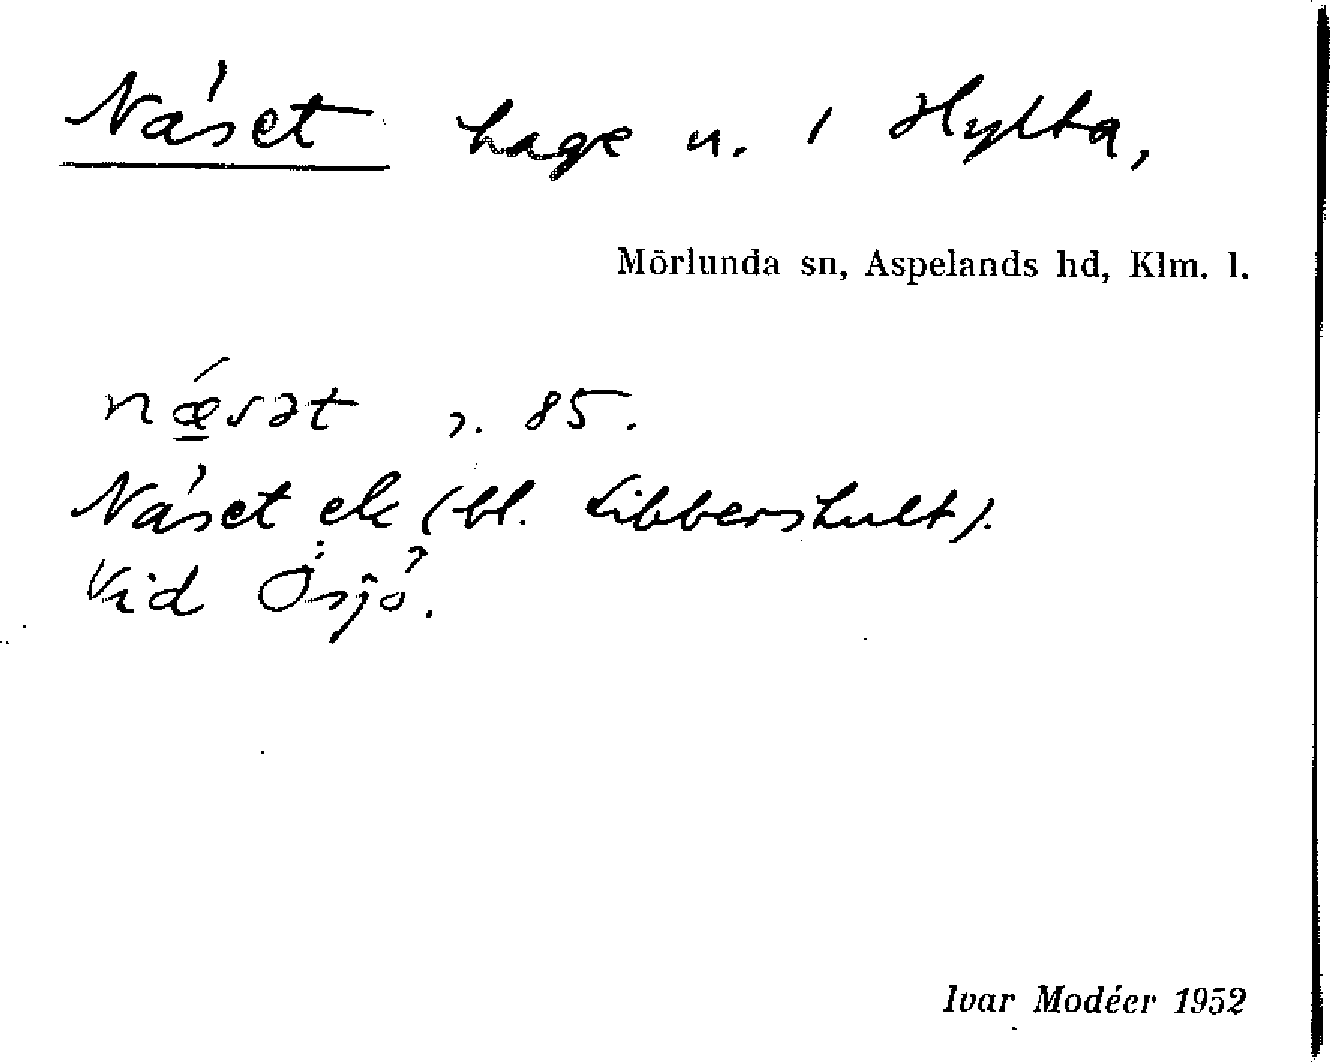 Näset hage n. i Hylta,
Mörlunda sn, Aspelands hd, Klm. l.
nǽ̱sət s. 85.
Näset ek (bl. Libbershult).
Vid Ösjö.
Ivar Modéer 1952